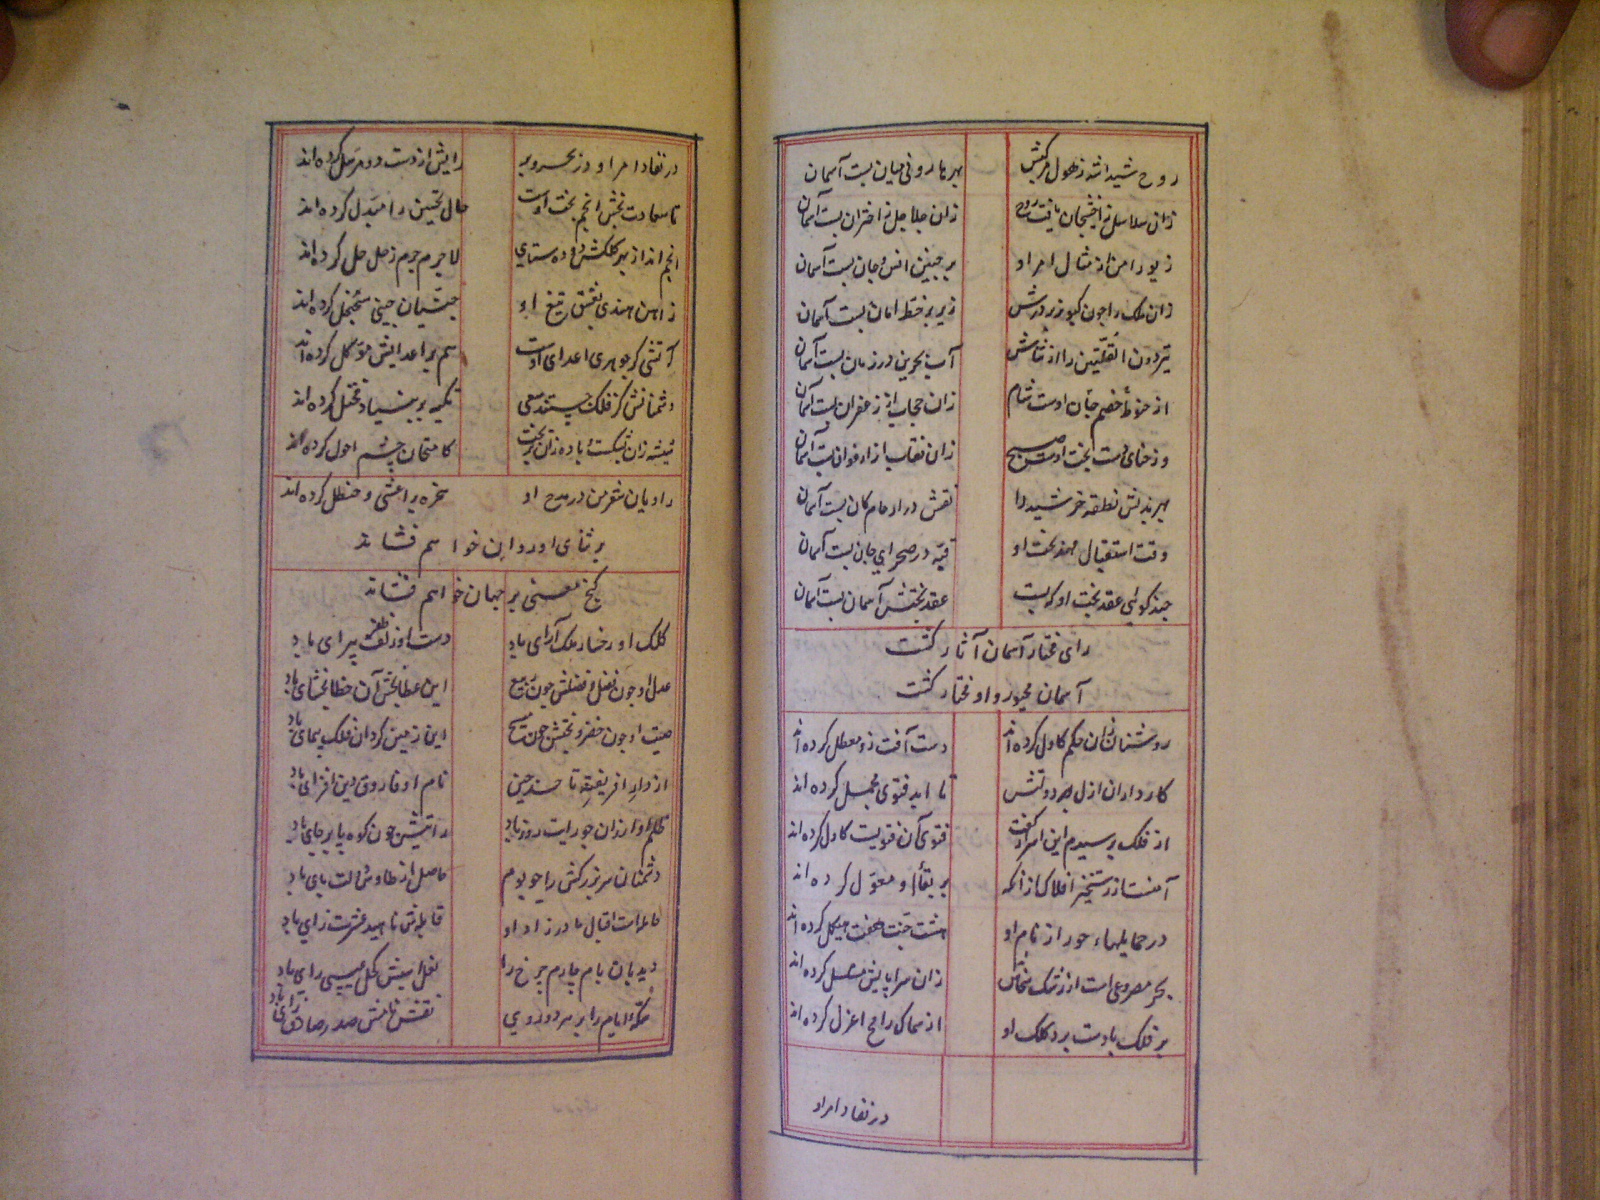 روح شیدا شد ز هول مرکبش بهر هارونی میان بست آسمان
زان سلاسل تافت روح زان جلاجل ز اختران بست آسمان
زیور امن از مثال امر او بر جبین انس و جان بست آسمان
زان ملک را چون کبوتر بر درش زیر پر خط امان بست آسمان
تیردون القلتین را از ثناش آب بحرین در زمان بست آسمان
از حنوط خصم جان اوست شام زان حجاب از زعفران بست آسمان
وز حنای دست بخت اوست صبح زان نقاب از ارغوان بست آسمان
بهر بذلش نطفه خرشید را نقش در ارحام کان بست آسمان
وقت استقبال مهد بخت او قبه در صحرای جان بست آسمان
چند گوئی عقد بخت او که بست عقد بختش آسمان بست آسمان
رای مختار آسمان آثار گشت
آسمان مجبور و او مختار گشت
روشنان زان حکم کاول کرده‌اند دست آفت زو معطل کرده‌اند
کارداران ازل بر دولتش تا ابد فتوی مجمل کرده‌اند
از فلک پرسیدم این اسرار گفت فتوی آن فتویست کاول کرده‌اند
آمنست از رستخیز افلاک از آنکه بر بقای او معول کرده‌اند
در حمایلهاء حور از نام او هشت جنت هفت هیکل کرده‌اند
بحر مصروعی است از رشک سخاش زان سراپایش مسلسل کرده‌اند
بر فلک با دست برد کلک او از سماک رامح اعزل کرده‌اند
در نفاد امر او
در نفاد امر او در بحر و بر رایش از دست دو مرسل کرده‌اند
تا سعادت بخش انجم بخت اوست حال نحسین را مبدل کرده‌اند
انجم اند از بهر کلکش دوده‌سای لاجرم جرم زحل حل کرده‌اند
ز آهن هندی بعشق تیغ او چینیان چینی سجنجل کرده‌اند
آتشی کز جوهری اعدای اوست هم بر اعدایش موکل کرده‌اند
دشمنانش کز فلک جستند سعی تکیه بر بنیاد مختل کرده‌اند
شیشه زان بشکست و باده زان بریخت کامتحان چشم احول کرده‌اند
راویان شعر من در مدح او سخره بر اعشی و حنظل کرده‌اند
بر ثنای او روان خواهم فشاند
گنج معنی بر جهان خواهم فشاند
کلک او رخسار ملک آرای باد دست او زلف ظفر پیرای باد
عدل او چون فضل و فضلش چون ربیع این عطابخش آن خطابخشای باد
صیت او چون خضر و بختش چون مسیح این زمین گردان فلک پیمای باد
از در افریقیه تا حد چین نام او فاروق دین افزای باد
ظلم ازو لرزان چو رایت روز باد رایتش چون کوه پا بر جای باد
دشمنان سر بزرگش را چو بوم حاصل از طاوس دولت پای باد
حامله است اقبال مادر زاد او قابله‌ش ناهید عشرت زای باد
دیدبان بام چارم چرخ را نعل اسبش کحل عیسی رای باد
سکه ایام را بر هر دو روی نقش نامش صدر صادق رای باد